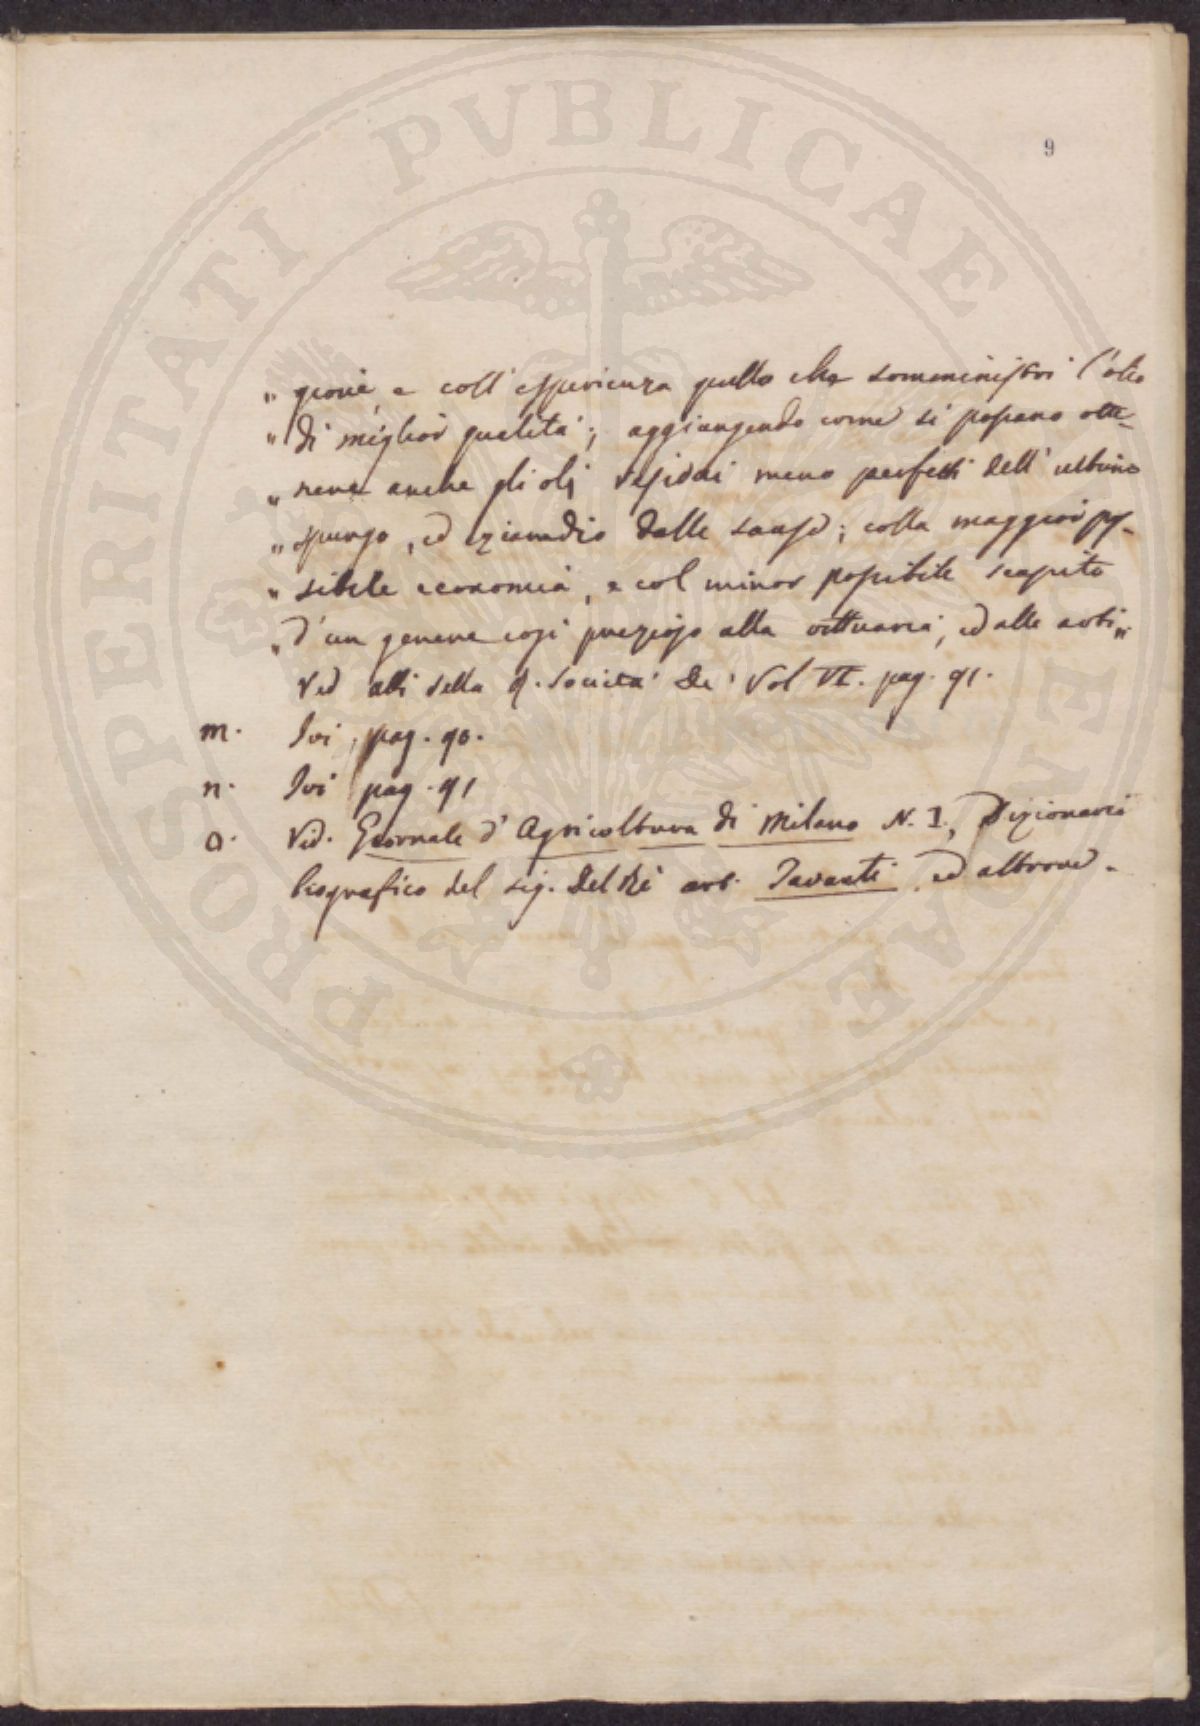 PROSPERITATI PUBLICAE AUGENDAE
9
„ gione, e coll' esperienza quello che somministri l'olio
„ di miglior qualità; aggiungendo come si possano otte-
„ nere anche gli olj residui meno perfetti dell' ultimo
„ spurgo, ed eziandio dalle sanse; colla maggior pos-
„ sibile economia, e col minor possibile scapito
„ d'un genere così prezioso alla vittuaria, ed alle arti„
Ved atti della d. Società De' Vol VI. pag. 91.
m. Ivi, pag. 90.
n. Ivi pag. 91
o. Ved. Giornale d' Agricoltura di Milano N. I., Dizionario
biografico del sig. Del Rè art. Tavanti, ed altrove.